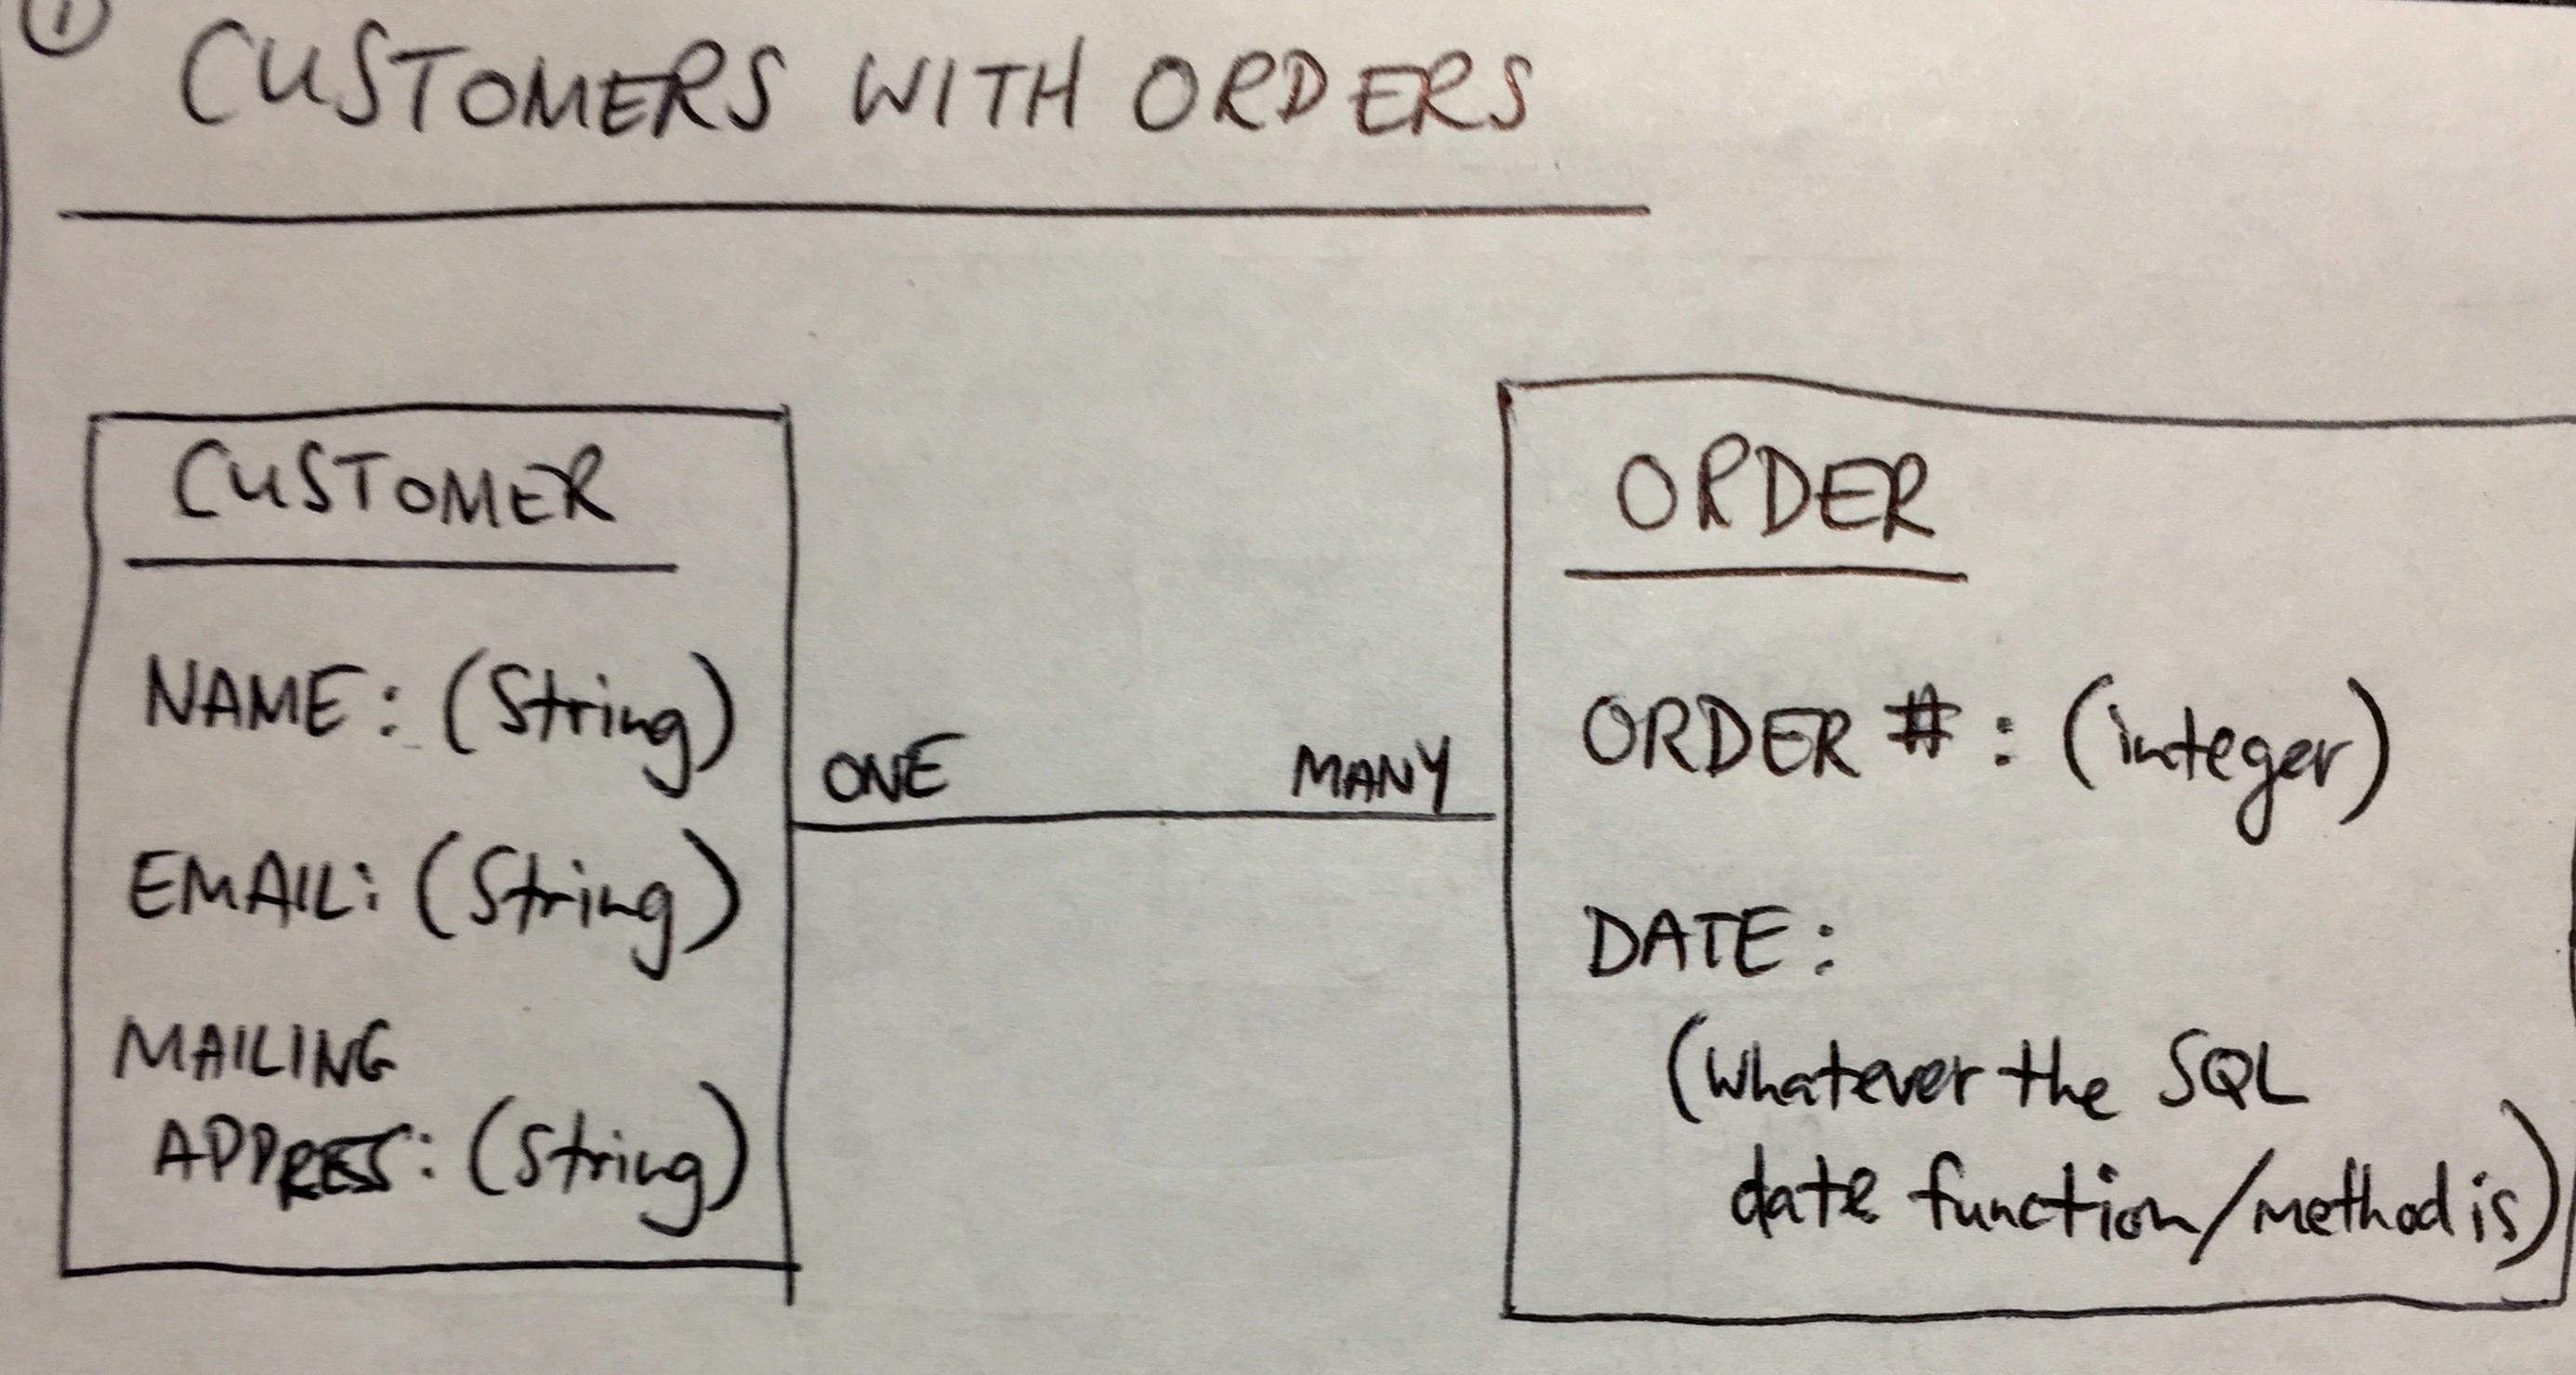 ①
CUSTOMERS WITH ORDERS
CUSTOMER
NAME: (String)
EMAIL: (String)
MAILING
ADDRES: (String)
ONE
MANY
ORDER
ORDER #: (integer)
DATE:
(whatever the SQL
date function/method is)